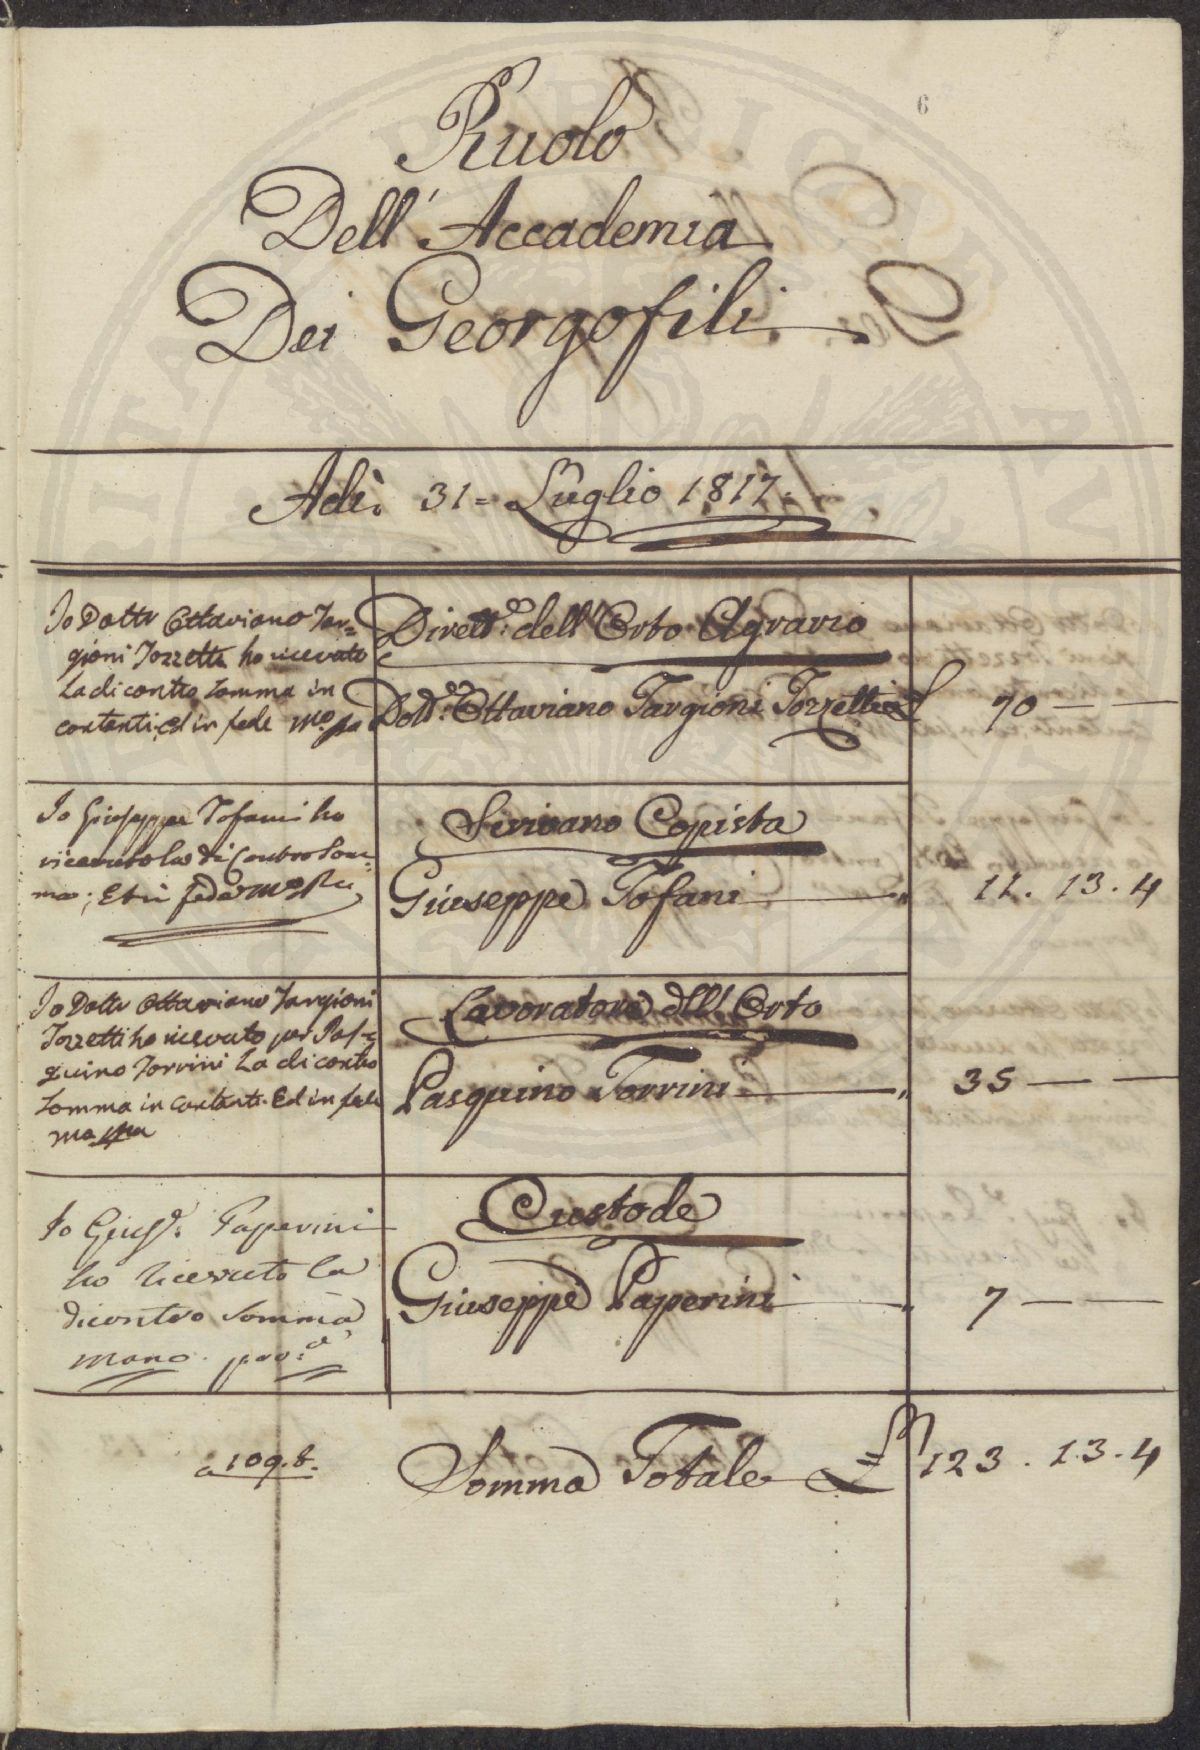 6
Ruolo
Dell' Accademia
Dei Georgofili
Adì. 31= Luglio 1817.
Io Dottr Ottaviano Tar=
gioni Tozzetti ho ricevuto
La di contro Somma in
contanti, ed in fede mo. pa
Dirett.re dell' Orto Agrario
Dott.re Ottaviano Targioni Tozzetti £ 70 — —
Io Giuseppe Tofani ho
ricevuto la di Contro Som=
ma; Et in fede mo Pa
Scrivano Copista
Giuseppe Tofani — " 11. 13. 4
Io Dottr Ottaviano Targioni
Tozzetti ho ricevuto per Pas=
quino Torrini La di contro
Somma in contanti. Ed in fede
mo pa
Lavoratore dell' Orto
Pasquino Torrini — " 35 — —
Io Gius.e Paperini
ho ricevuto la
dicontro Somma
mano pro.a
Custode
Giuseppe Paperini — " 7 — —
a 109.8.
Somma Totale £ 123. 13. 4